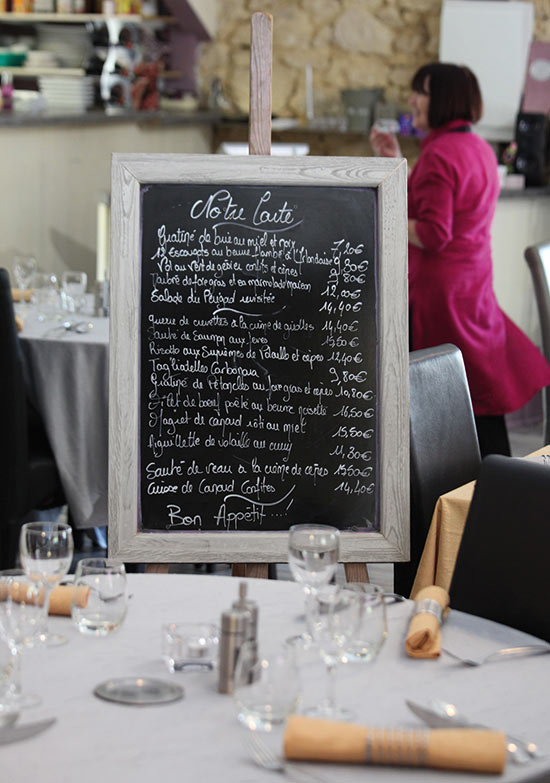 Notre Carte
Gratiné de brie au miel et noix 7,20€
12 Escargots au beurre flambé à l'Irlandaise 9,90€
Vol au vent de gésier confits et cèpes 9,50€
Marbré de foie gras et sa marmelade maison 12,00€
Salade du Périgord revisitée 14,40€
queue de crevettes à la crème de girolles 14,40€
Sauté de Saumon aux fèves 13,50€
Risotto aux Suprêmes de Volaille et cèpes 12,40€
Tagliatelles Carbonara 9,80€
Gratiné de Pétoncles au foie gras et cèpes 10,80€
Filet de boeuf poêlé au beurre noisette 16,50€
Magret de canard rôti au miel 15,50€
Aiguillette de volaille au curry 11,30€
Sauté de veau à la crème de cèpes 15,50€
Cuisse de Canard Confites 14,40€
Bon Appétit ...!